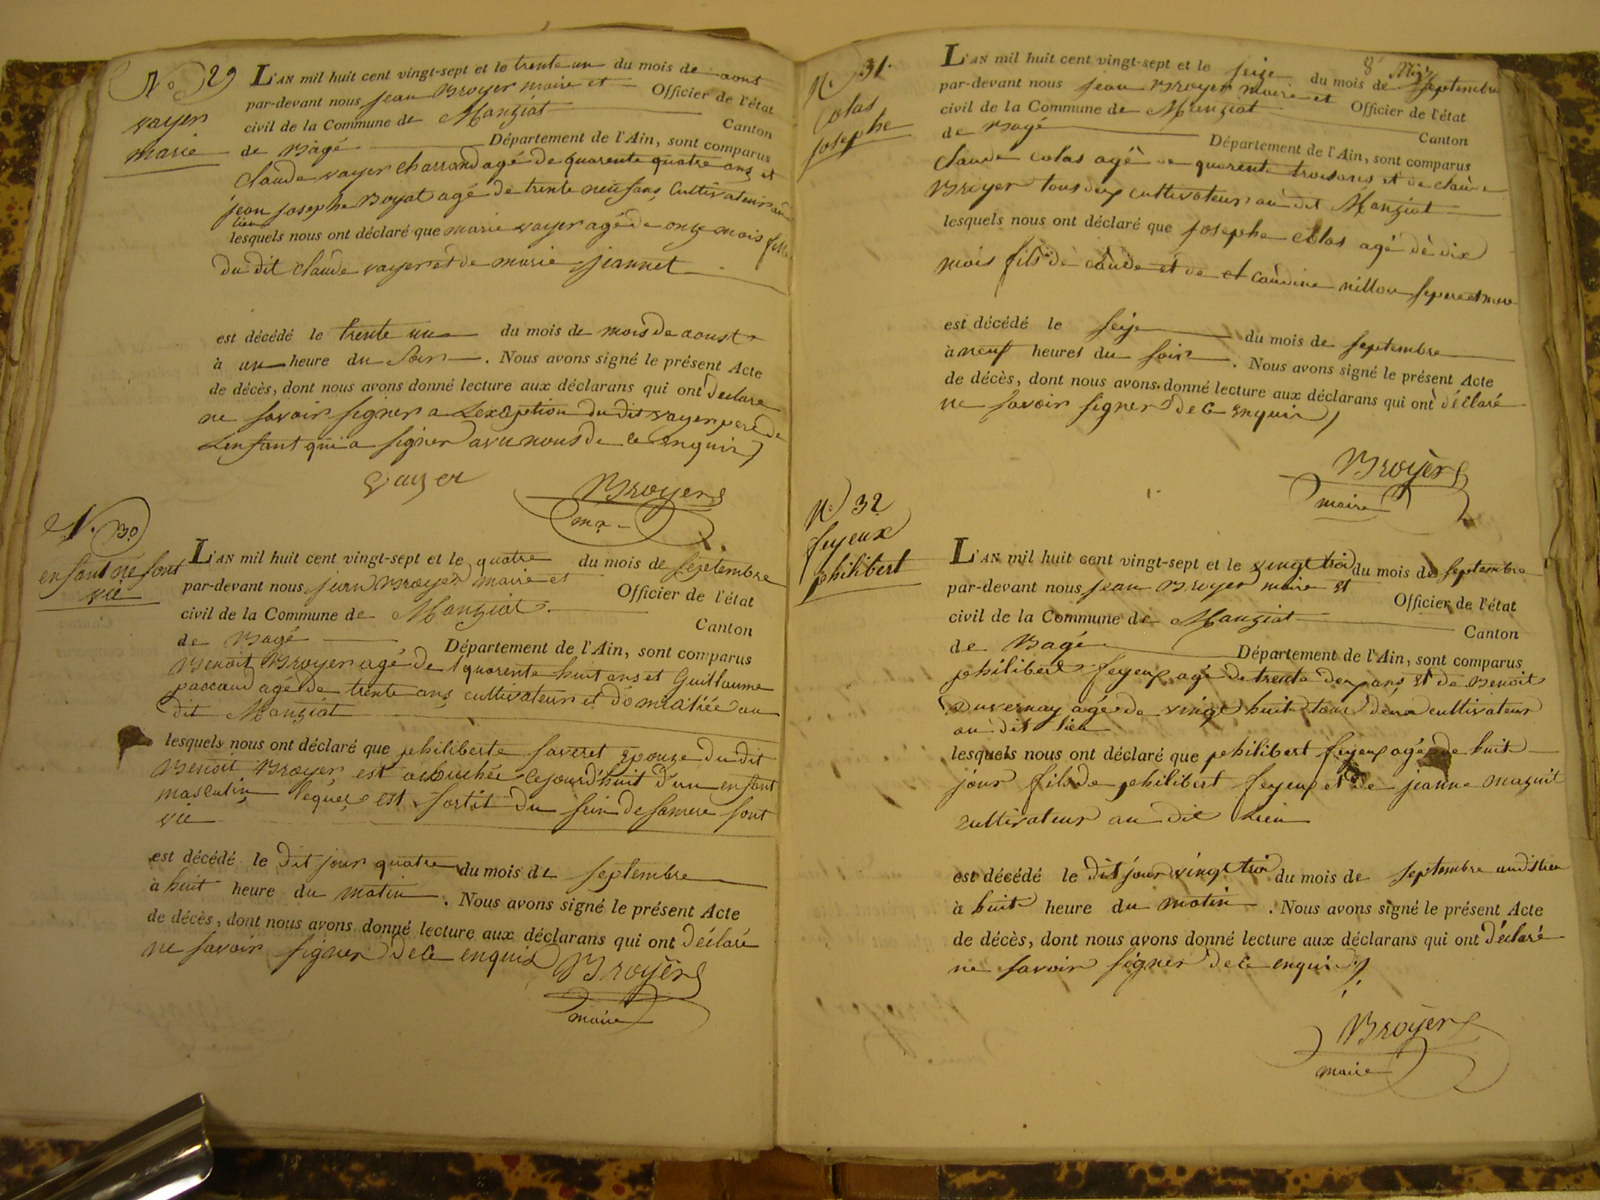 N.o 29
vayer
marie
L'AN mil huit cent vingt-sept et le trente un du mois de aout
par-devant nous jean Broyer maire et Officier de l'état
civil de la Commune de Manziat Canton
de Bagé Département de l'Ain, sont comparus
Claude vayer charrond agé de quarente quatre ans et
jean josephe Boyat agé de trente neuf ans Cultivateur au
lieu
lesquels nous ont déclaré que marie vayer agé de onze mois fille
du dit claude vayer et de marie jeannet
est décédé le trente un du mois de mois de aoust
à un heure du soir. Nous avons signé le présent Acte
de décès, dont nous avons donné lecture aux déclarans qui ont declare
ne savoir signer a Lexception du dit vayer pere de
Lenfant qui a signer avec nous de ce enquir
vayer
Broyer
ma
N. 30
enfant né sont
vie
L'AN mil huit cent vingt-sept et le quatre du mois de septembre
par-devant nous jean Broyer maire et Officier de l'état
civil de la Commune de Manziat Canton
de Bagé Département de l'Ain, sont comparus
Benoit Broyer agé de quarente huit ans et Guillaume
paccaud agé de trente ans cultivateur et domiciliée au
dit Manziat
lesquels nous ont déclaré que philiberte favret Epouze du dit
Benoit Broyer est acouchée cejourdhuit d'un enfant
masculin lequel est sortit du sein de sa mere sont
vie
est décédé le dit jour quatre du mois de septembre
à huit heure du matin. Nous avons signé le présent Acte
de décès, dont nous avons donné lecture aux déclarans qui ont déclaré
ne savoir signer de ce enquis
Broyer
maire
N. 31.
Colas
josephe
8
L'AN mil huit cent vingt-sept et le seize du mois de septembre
par-devant nous jean Broyer maire et Officier de l'état
civil de la Commune de Manziat Canton
de Bagé Département de l'Ain, sont comparus
claude colas agé de quarente trois ans et de claude
Broyer tous deux cultivateur au dit Manziat
lesquels nous ont déclaré que josephe colas agé de dix
mois fils de claude et de et claudine nillon se pere et mere
est décédé le seize du mois de septembre
à neuf heures du soir. Nous avons signé le présent Acte
de décès, dont nous avons donné lecture aux déclarans qui ont déclaré
ne savoir signer de ce enquir
Broyer
maire
N. 32
feyeux
philibert
L'AN mil huit cent vingt-sept et le vingt troi du mois de septembre
par-devant nous jean Broyer maire et Officier de l'état
civil de la Commune de Manziat Canton
de Bagé Département de l'Ain, sont comparus
philibert feyeux agé de trente deux ans et de Benoit
Duvernay agé de vingt huit tous deux cultivateur
au dit lieu
lesquels nous ont déclaré que philibert feyeux agé de huit
jour fils de philibert feyeux et de jeanne mazuit
cultivateur au dit Lieu
est décédé le dit jour vingt troi du mois de septembre au dit lieu
à huit heure du matin. Nous avons signé le présent Acte
de décès, dont nous avons donné lecture aux déclarans qui ont déclaré
ne savoir signer de ce enquis
Broyer
maire